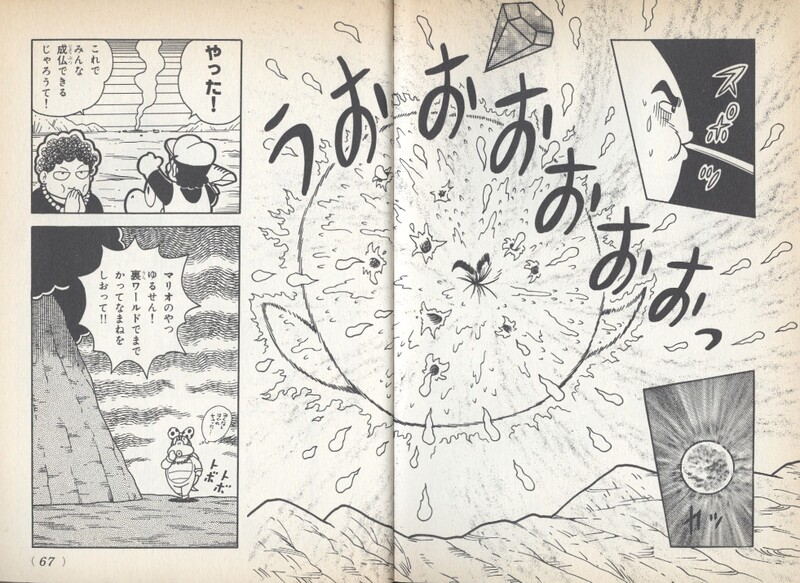 スポッ
カッ
うおおおおおおっ
やった!
これで
みんな
成仏できる
じゃろうて!
マリオのやつ
ゆるせん!
裏ワールドでまで
かってなまねを
しおって!!
トボ
トボ
(67)